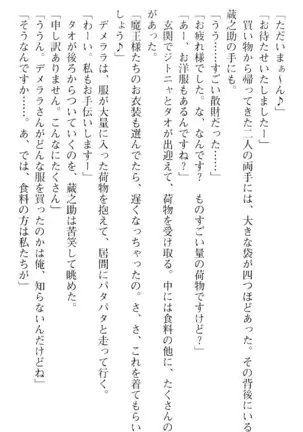 「ただいまぁぃん♪」
「お待たせいたしましたー」
買い物から帰ってきた二人の両手には、大きな袋が四つほどあった。その背後にいる
蔵之助の手にも。
「うう……すごい散財だった……」
「お疲れ様でした。な、なんです？　ものすごい量の荷物ですけど？」
「あっ、お洋服もあるんですね？」
玄関でジトニャとタオが出迎えて、荷物を受け取る。中には食料の他に、たくさんの
衣服があった。
「魔王様たちのお衣装も選んでたら、遅くなっちゃったの。さ、さ、これを着てもらい
ましょう♪」
デメララは、服が大量に入った荷物を抱えて、居間にパタパタと走って行く。
「わーい。私もお手伝いしますー」
タオが後ろからついていくのを、蔵之助は苦笑して眺めた。
「申し訳ありません。こんなにたくさん」
「ううん。デメララさんがどんな服を買ったのかは俺、知らないんだけどね」
「そうなんですか……。あ、では、食料の方は私たちが」